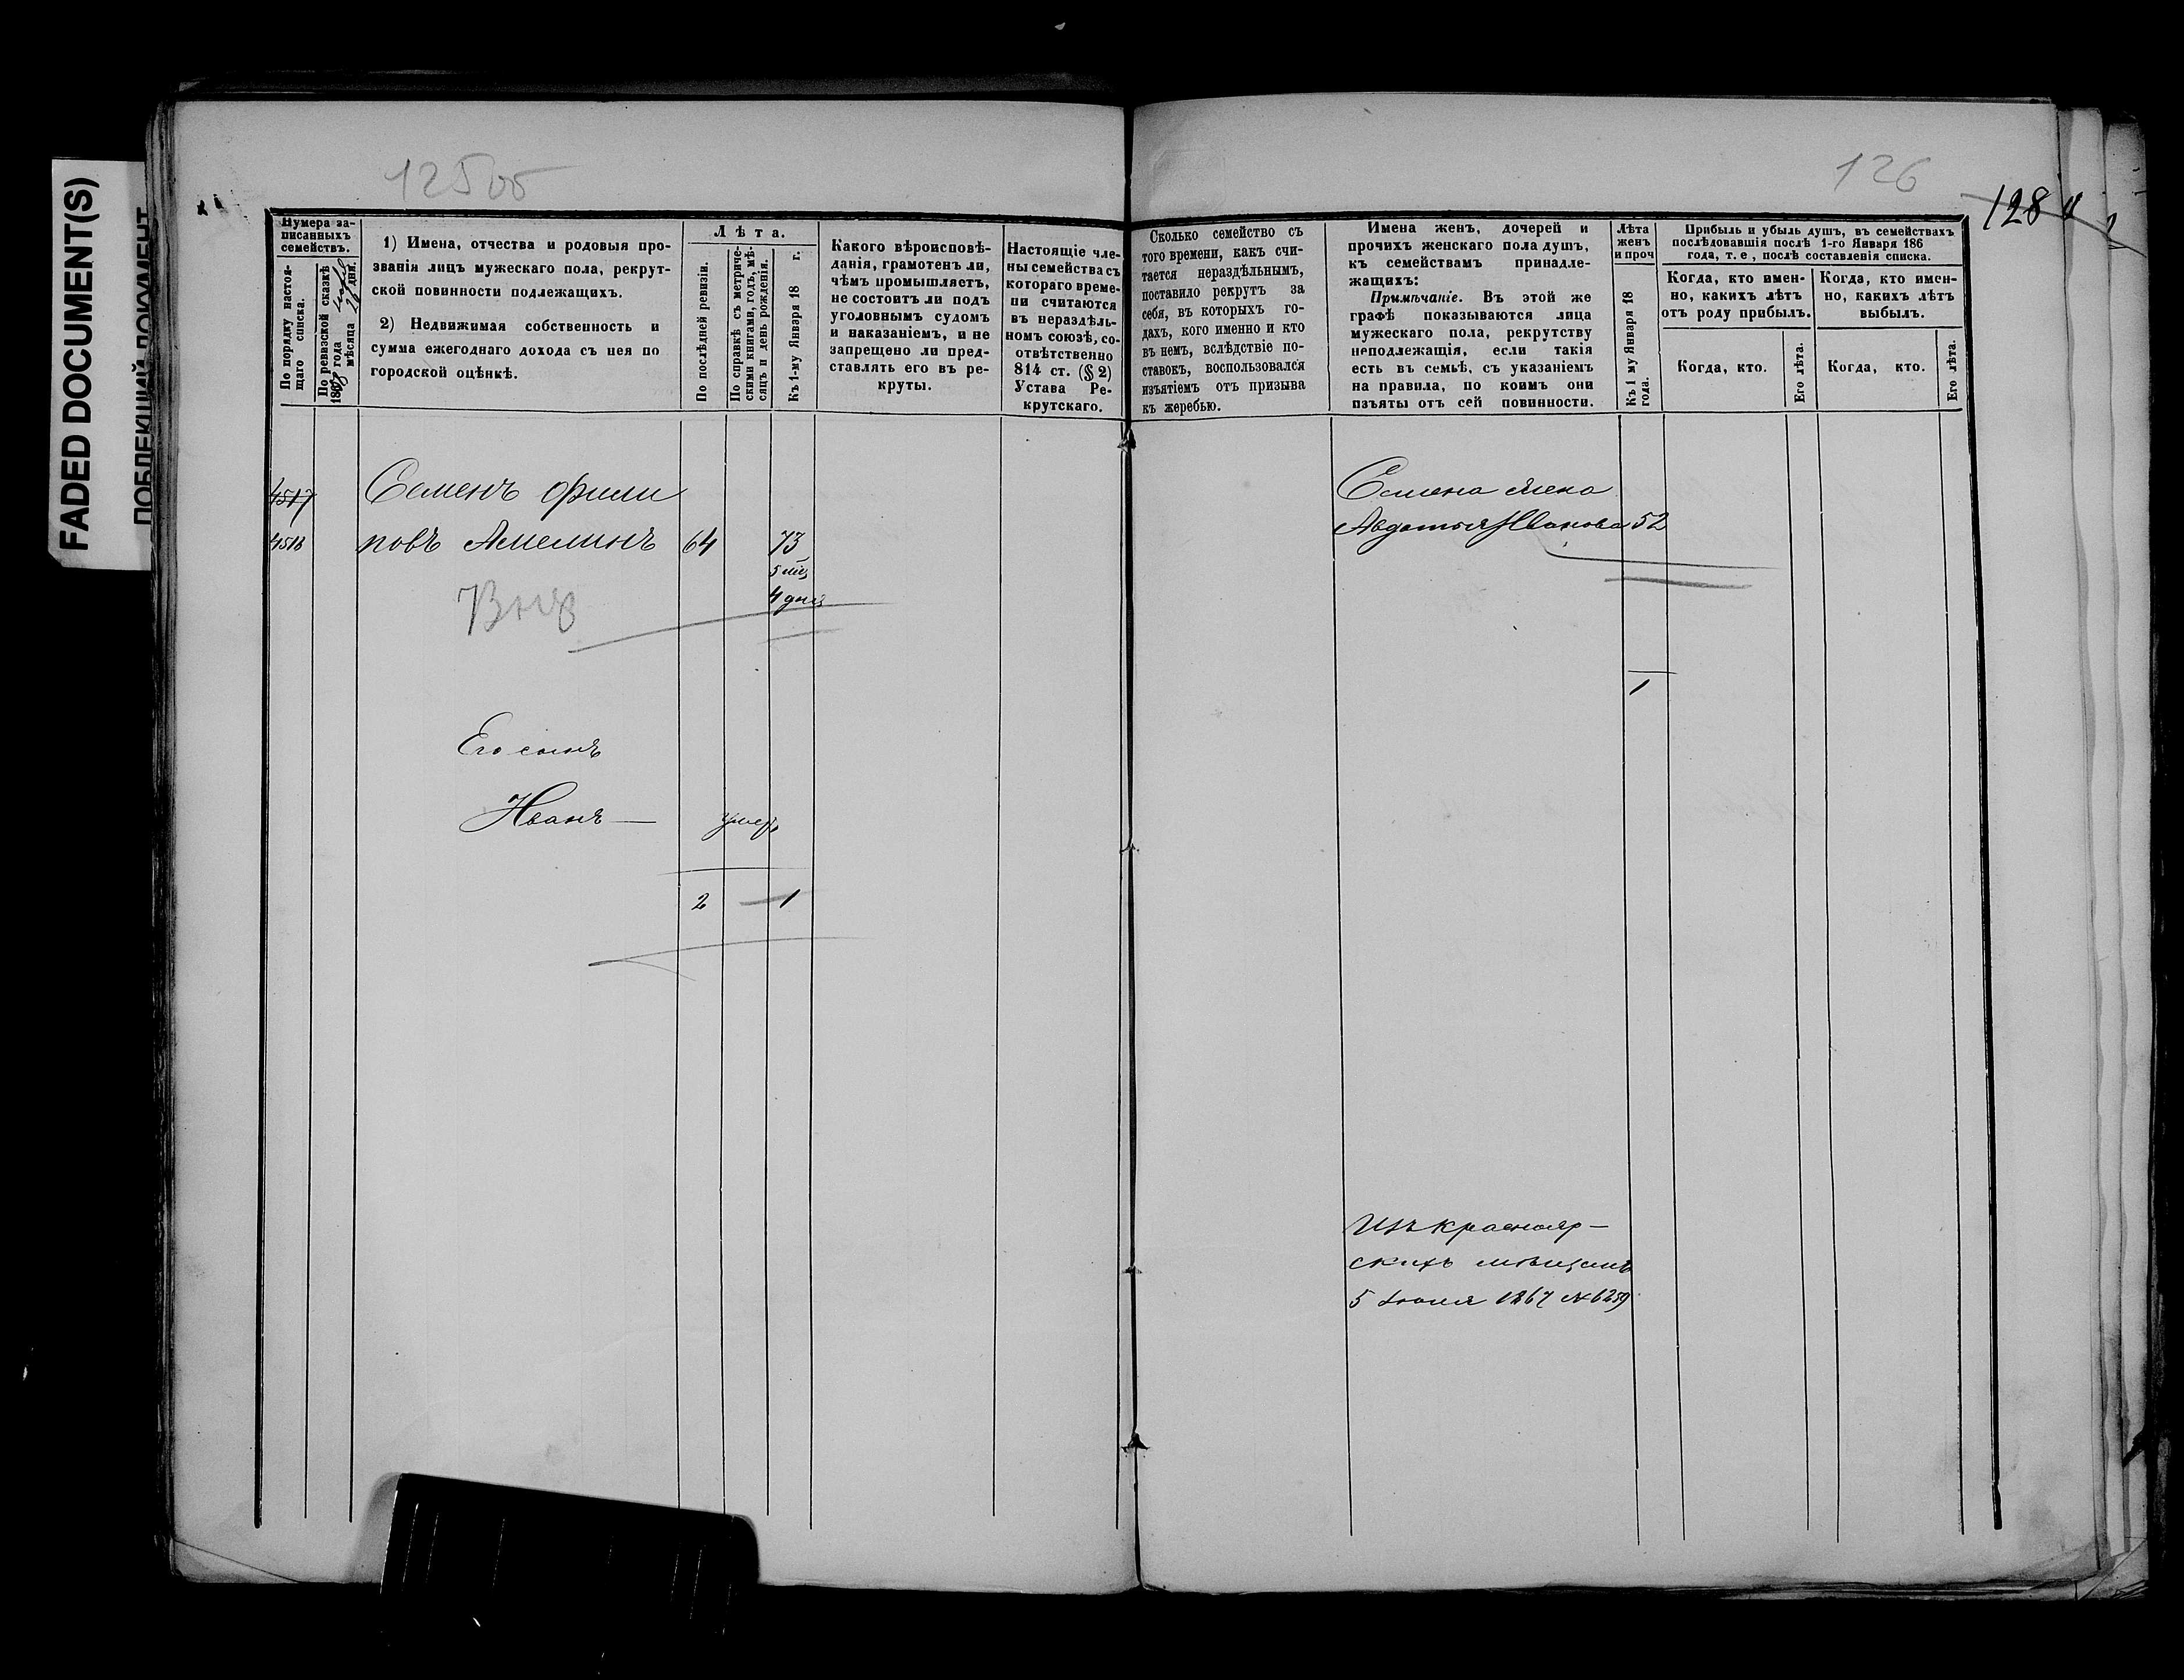 FADED DOCUMENT(S)
125об
126
128
Нумера за-
писанныхъ
семействъ.
По порядку настоя-
щаго списка.
По ревизской сказкѣ
года
мѣсяца 20 дня.
1) Имена, отчества и родовыя про-
званія лицъ мужескаго пола, рекрут-
ской повинности подлежащихъ.
2) Недвижимая собственность и
сумма ежегоднаго дохода съ нея по
городской оцѣнкѣ.
Лѣта.
По послѣдней ревизіи.
По справкѣ съ метриче-
скими книгами, годъ, мѣ-
сяцъ и день рожденія.
Къ 1-му Января 18 г.
Какого вѣроисповѣ-
данія, грамотенъ ли,
чѣмъ промышляетъ,
не состоитъ ли подъ
уголовнымъ судомъ
и наказаніемъ, и не
запрещено ли пред-
ставлять его въ ре-
круты.
Настоящіе чле-
ны семейства съ
котораго време-
ни считаются
въ нераздѣль-
номъ союзѣ, со-
отвѣтственно
814 ст. (§ 2)
Устава Ре-
крутскаго.
Сколько семейство съ
того времени, какъ счи-
тается нераздѣльнымъ,
поставило рекрутъ за
себя, въ которыхъ го-
дахъ, кого именно и кто
въ немъ, вслѣдствіе по-
ставокъ, воспользовался
изъятіемъ отъ призыва
къ жеребью.
Имена женъ, дочерей и
прочихъ женскаго пола душъ,
къ семействамъ принадле-
жащихъ:
Примѣчаніе. Въ этой же
графѣ показываются лица
мужескаго пола, рекрутству
неподлежащія, если такія
есть въ семьѣ, съ указаніемъ
на правила, по коимъ они
изъяты отъ сей повинности.
Лѣта
женъ
и проч
Къ 1 му Января 18
года.
Прибыль и убыль душъ, въ семействахъ
послѣдовавшія послѣ 1-го Января 186
года, т. е, послѣ составленія списка.
Когда, кто имен-
но, какихъ лѣтъ
отъ роду прибылъ.
Когда, кто имен-
но, какихъ лѣтъ
выбылъ.
Когда, кто.
Его лѣта.
Когда, кто.
Его лѣта.
4517
4518
Семенъ Филип
повъ Амелинъ 64 73
5 мѣс
4 дня
Семена жена
Авдотья Иванова 52
1
Его сынъ
Иванъ — умеръ
2 — 1
Изъ Краснояр-
скихъ мѣщанъ
5 Іюля 1867 № 6259